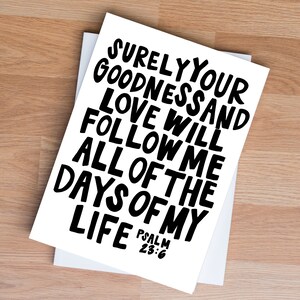 SURELY YOUR
GOODNESS AND
LOVE WILL
FOLLOW ME
ALL OF THE
DAYS OF MY
LIFE PSALM
23:6